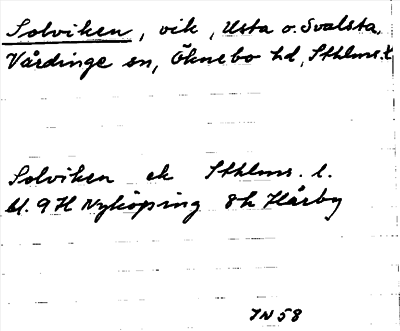 Solviken, vik, Usta o. Svalsta,
Vårdinge sn, Öknebo hd, Sthlms. l.
Solviken ek Sthlms. l.
bl. 9H Nyköping 8h Hårby
IN 58